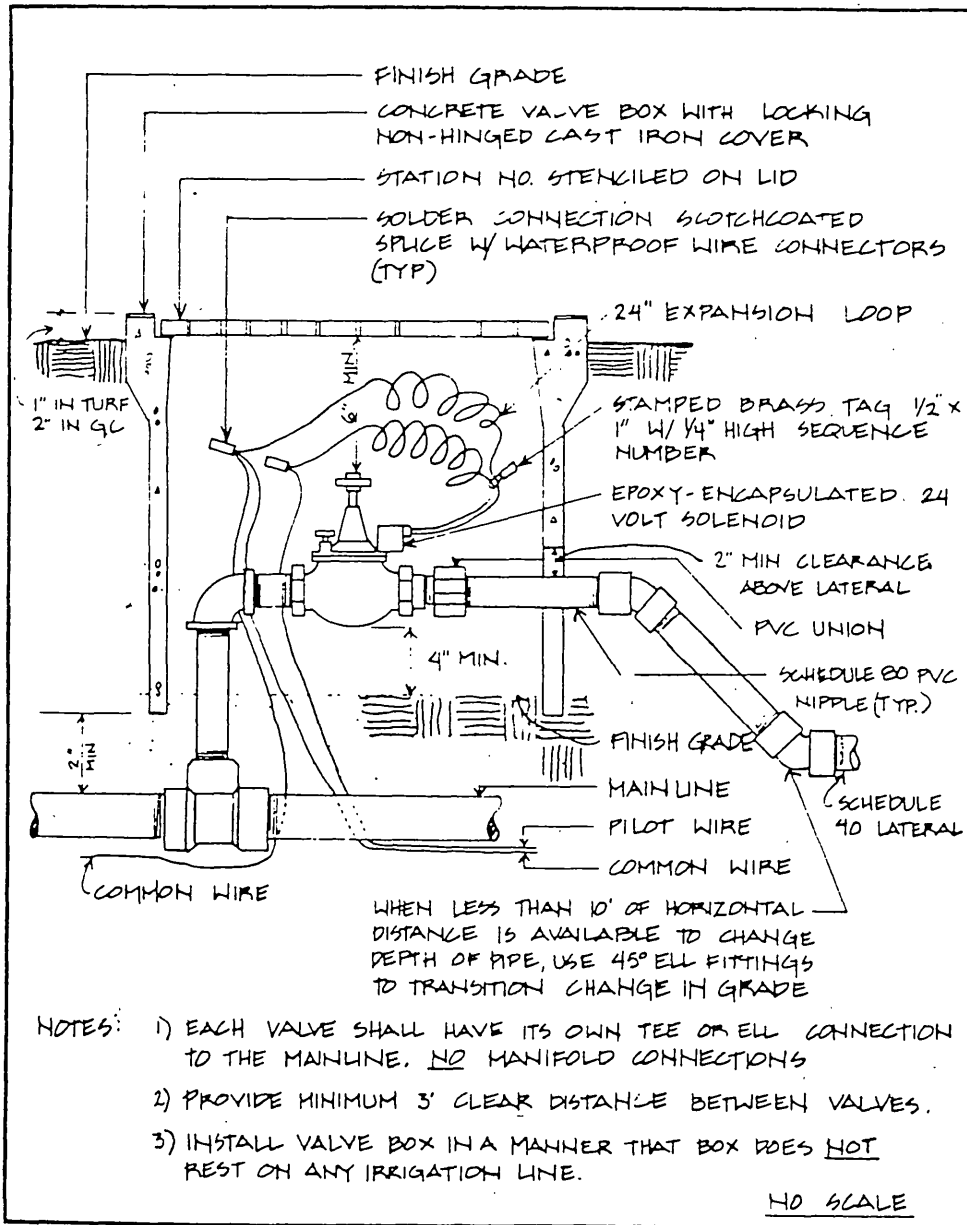 FINISH GRADE
CONCRETE VALVE BOX WITH LOCKING
NON-HINGED CAST IRON COVER
STATION NO. STENCILED ON LID
SOLDER CONNECTION SCOTCHCOATED
SPLICE W/ WATERPROOF WIRE CONNECTORS
(TYP)
24" EXPANSION LOOP
MIN
6"
1" IN TURF
2" IN GC
STAMPED BRASS TAG 1/2" X
1" W/ 1/4" HIGH SEQUENCE
NUMBER
EPOXY-ENCAPSULATED 24
VOLT SOLENOID
2" MIN CLEARANCE
ABOVE LATERAL
PVC UNION
4" MIN.
SCHEDULE 80 PVC
NIPPLE (TYP.)
2"
MIN
FINISH GRADE
MAINLINE
SCHEDULE
40 LATERAL
PILOT WIRE
COMMON WIRE
COMMON WIRE
WHEN LESS THAN 10' OF HORIZONTAL
DISTANCE IS AVAILABLE TO CHANGE
DEPTH OF PIPE, USE 45° ELL FITTINGS
TO TRANSITION CHANGE IN GRADE
NOTES: 1) EACH VALVE SHALL HAVE ITS OWN TEE OR ELL CONNECTION
TO THE MAINLINE. NO MANIFOLD CONNECTIONS
2) PROVIDE MINIMUM 3' CLEAR DISTANCE BETWEEN VALVES.
3) INSTALL VALVE BOX IN A MANNER THAT BOX DOES NOT
REST ON ANY IRRIGATION LINE.
NO SCALE